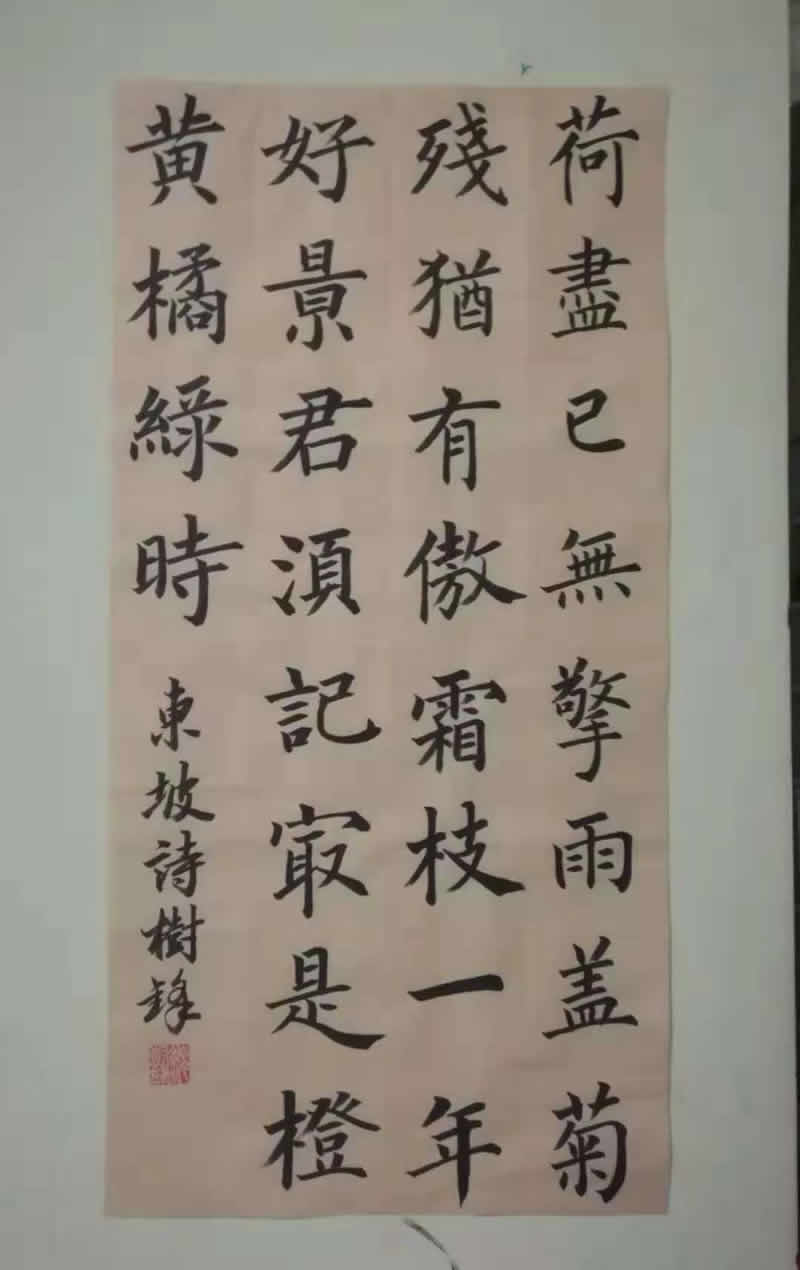 荷盡已無擎雨盖菊
殘猶有傲霜枝一年
好景君湏記㝡是橙
黄橘緑時
東坡詩樹鋒